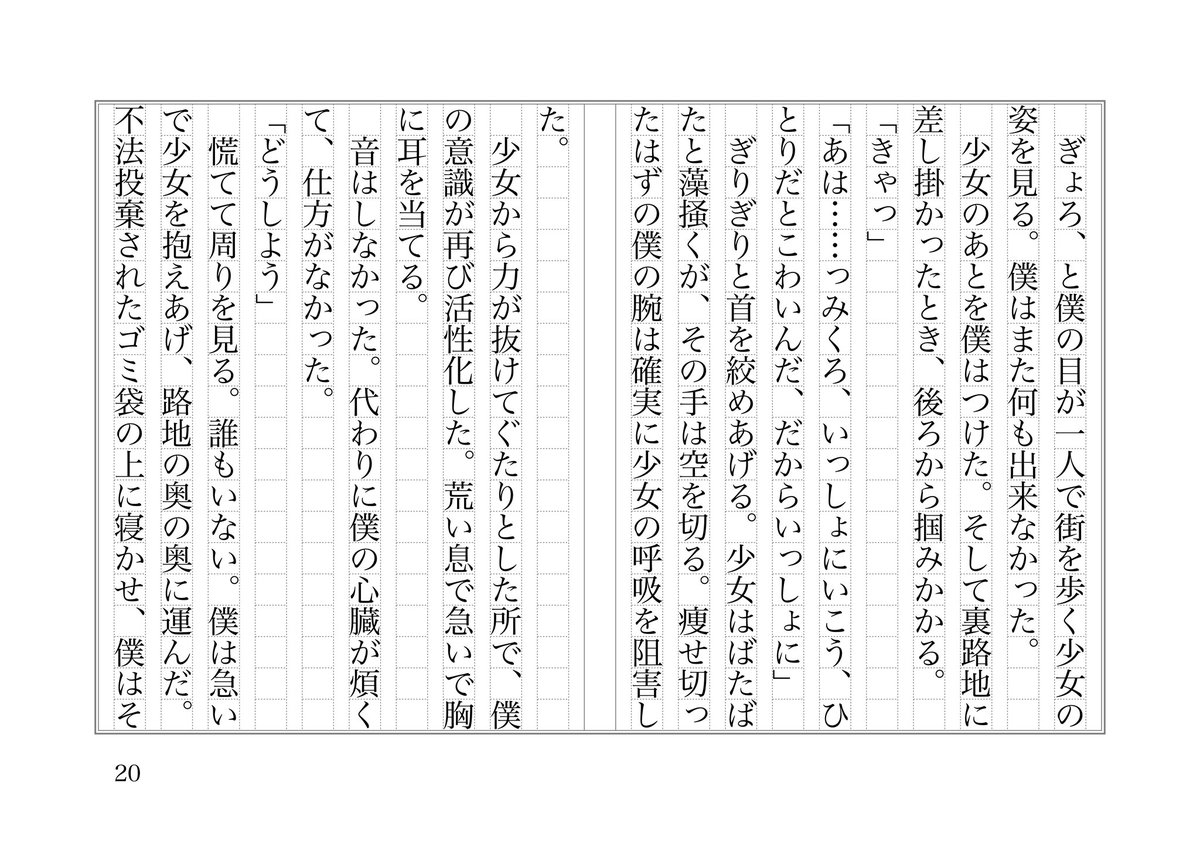 ぎょろ、と僕の目が一人で街を歩く少女の
姿を見る。僕はまた何も出来なかった。
　少女のあとを僕はつけた。そして裏路地に
差し掛かったとき、後ろから掴みかかる。
「きゃっ」
「あは……っみくろ、いっしょにいこう、ひ
とりだとこわいんだ、だからいっしょに」
　ぎりぎりと首を絞めあげる。少女はばたば
たと藻掻くが、その手は空を切る。痩せ切っ
たはずの僕の腕は確実に少女の呼吸を阻害し
た。
　少女から力が抜けてぐたりとした所で、僕
の意識が再び活性化した。荒い息で急いで胸
に耳を当てる。
　音はしなかった。代わりに僕の心臓が煩く
て、仕方がなかった。
「どうしよう」
　慌てて周りを見る。誰もいない。僕は急い
で少女を抱えあげ、路地の奥の奥に運んだ。
不法投棄されたゴミ袋の上に寝かせ、僕はそ
20